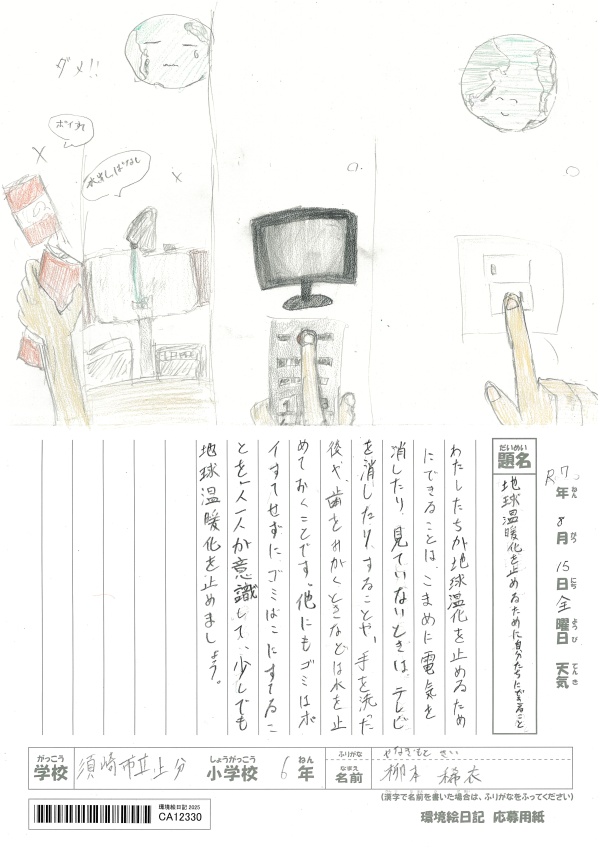 ダメ!!
ポイすて
水出しぱなし
だいめい
題名
地球温暖化を止めるために自分たちにできること
R7年 8月 15日 金曜日 天気
ねん がつ にち ようび てんき
わたしたちが地球温化を止めるため
にできることは、こまめに電気を
消したり、見ていないときは、テレビ
を消したり、することや、手を洗った
後や、歯をみがくときなどは水を止
めておくことです。他にもゴミはポ
イすてせずにゴミばこにすてるこ
とを一人一人が意識して、少しでも
地球温暖化を止めましょう。
がっこう
学校
須崎市立上分
しょうがっこう
小学校
6
ねん
年
ふりがな
やなぎもと さい
なまえ
名前
柳本 稀衣
(漢字で名前を書いた場合は、ふりがなをふってください)
環境絵日記 2025
CA12330
環境絵日記 応募用紙